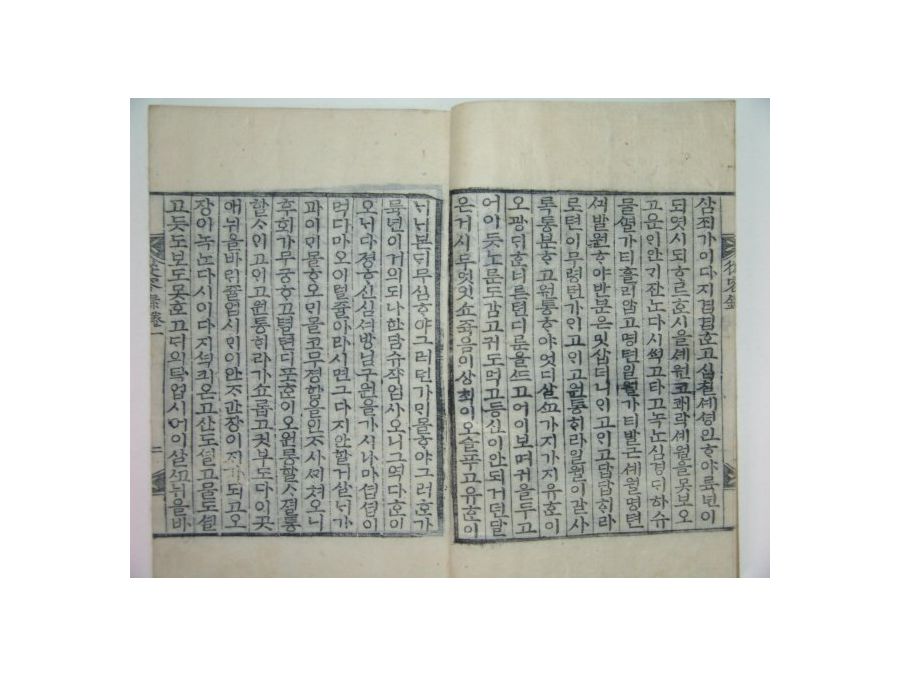 삼죄가이다지겹겹ᄒᆞ고십칠셰쳥인ᄒᆞ야륙년이
되엿시되ᄒᆞ르ᄒᆞ시을셰원코쾌락셰월을못보오
고운인안기잔노다시썩고타고녹노심경더하슈
믈쎨가티흘리암고명턴일월가티발근셰월명턴
셔발원ᄒᆞ야반분은밋삽더니인고인고답답히라
로턴이무령턴가인고인고원통히라일월이갈사
록통분ᄒᆞ고원통ᄒᆞ야엇디살쇼가지가지유ᄒᆞ이
오광딘ᄒᆞ너른턴디룬을ᄯᅳ고어이보며귀을두고
어이듯노룬도감고귀도먹고등신이안되거던달
은거시무엇잇쇼쥭음이상최이오슬푸고유ᄒᆞ이
본딘무심ᄒᆞ야그러턴가민몰ᄒᆞ야그러ᄒᆞ가
륙년이거의되나한담슈쟉업사오니그역다ᄒᆞ이
오닌다졍ᄒᆞ신심셔방님구원을가시나마셥셥이
먹다마오이털줄아라시면그다지안할거살넌가
파이민몰ᄒᆞ오민몰코무졍함을인ᄌᆞ사씨쳐오니
후회가무궁ᄒᆞ고텰턴디포ᄒᆞ이오원통할ᄉᆞ졀통
할ᄉᆞ인고인고원통히라가쇼롭고것부도다이곳
애뉘을바릭쥴업시인이안ᄌᆞ간장이 되고오
장이녹노다시이다지셕킉온고산도셜고믈도셜
고듯도보도못ᄒᆞ고디의탁업시어이살쇼뉘을바
卷一